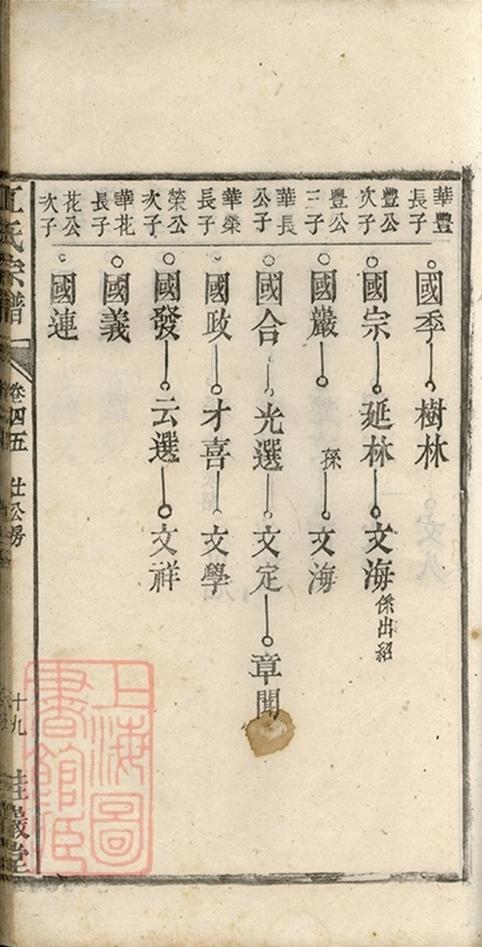 華豐長子
國季 樹林
豐公次子
國宗 延林 文海 係出紹
豐公三子
國嚴 文海
華長公子
國合 光選 文定 章聞
華榮長子
國政 才喜 文學
榮公次子
國發 云選 文祥
華花長子
國義
花公次子
國連
氏宗譜
卷四五 仕公房
十九
上海圖
書館藏